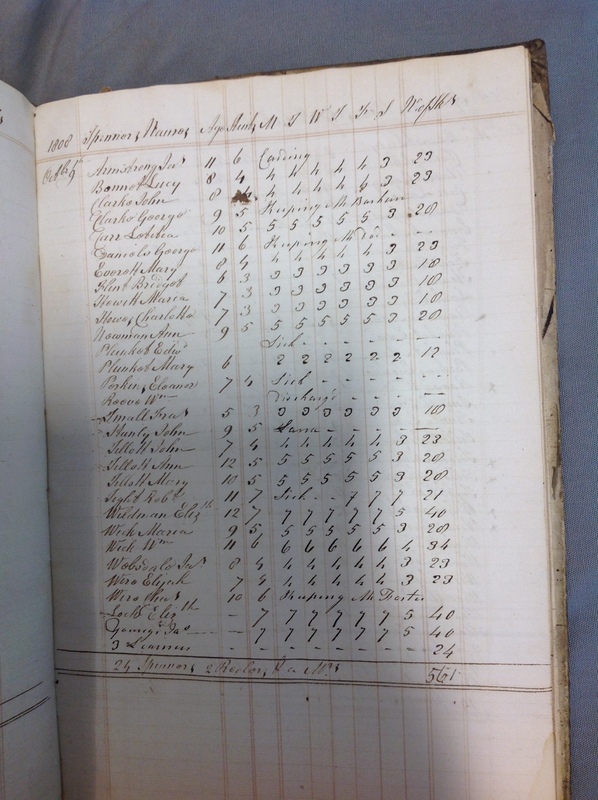 1808 Spinners Names Age Hank M T W T F S
Octbr 9th Armstrong Jas 11 6 Carding
Bonnet Lucy 8 4 4 4 4 4 4 3 23
Clarke John 8 4 4 4 4 4 4 3 23
Clarke George 9 5 Keeping
Carr Lobbia 10 5 5 5 5 5 5 3 28
Daniels George 11 6 Keeping Mr Do - -
Everett Mary 8 4 4 4 4 4 4 3 23
Flint Bridget 6 3 3 3 3 3 3 3 18
Howett Maria 7 3 3 3 3 3 3 3 18
Howes Charlotte 7 3 3 3 3 3 3 3 18
Nowman Ann 9 5 5 5 5 5 5 3 28
Plunket Edwd Sick - - - - -
Plunket Mary 6 2 2 2 2 2 2 12
Perkins Eleanor 7 4 Sick - - - - -
Reeve Wm Discharg'd - - - -
Small Fras 5 3 3 3 3 3 3 3 18
Stanly John 9 5 - - - - -
Tillott John 7 4 4 4 4 4 4 3 23
Tillott Ann 12 5 5 5 5 5 5 3 28
Tillott Mary 10 5 5 5 5 5 5 3 28
Robt 11 7 Sick - - 7 7 7 21
Wildman Elizth 12 7 7 7 7 7 7 5 40
Wick Maria 9 5 5 5 5 5 5 3 28
Wick Wm 11 6 6 6 6 6 6 4 34
Jas 8 4 4 4 4 4 4 3 23
Wire Elijah 7 4 4 4 4 4 4 3 23
Wire Chas 10 6 Keeping Mr
Lock Elizth - 7 7 7 7 7 7 5 40
Youngs Jas - 7 7 7 7 7 7 5 40
3 Learners - - - - - - - - 24
24 Spinners 2 Reelers & a Mrs 561